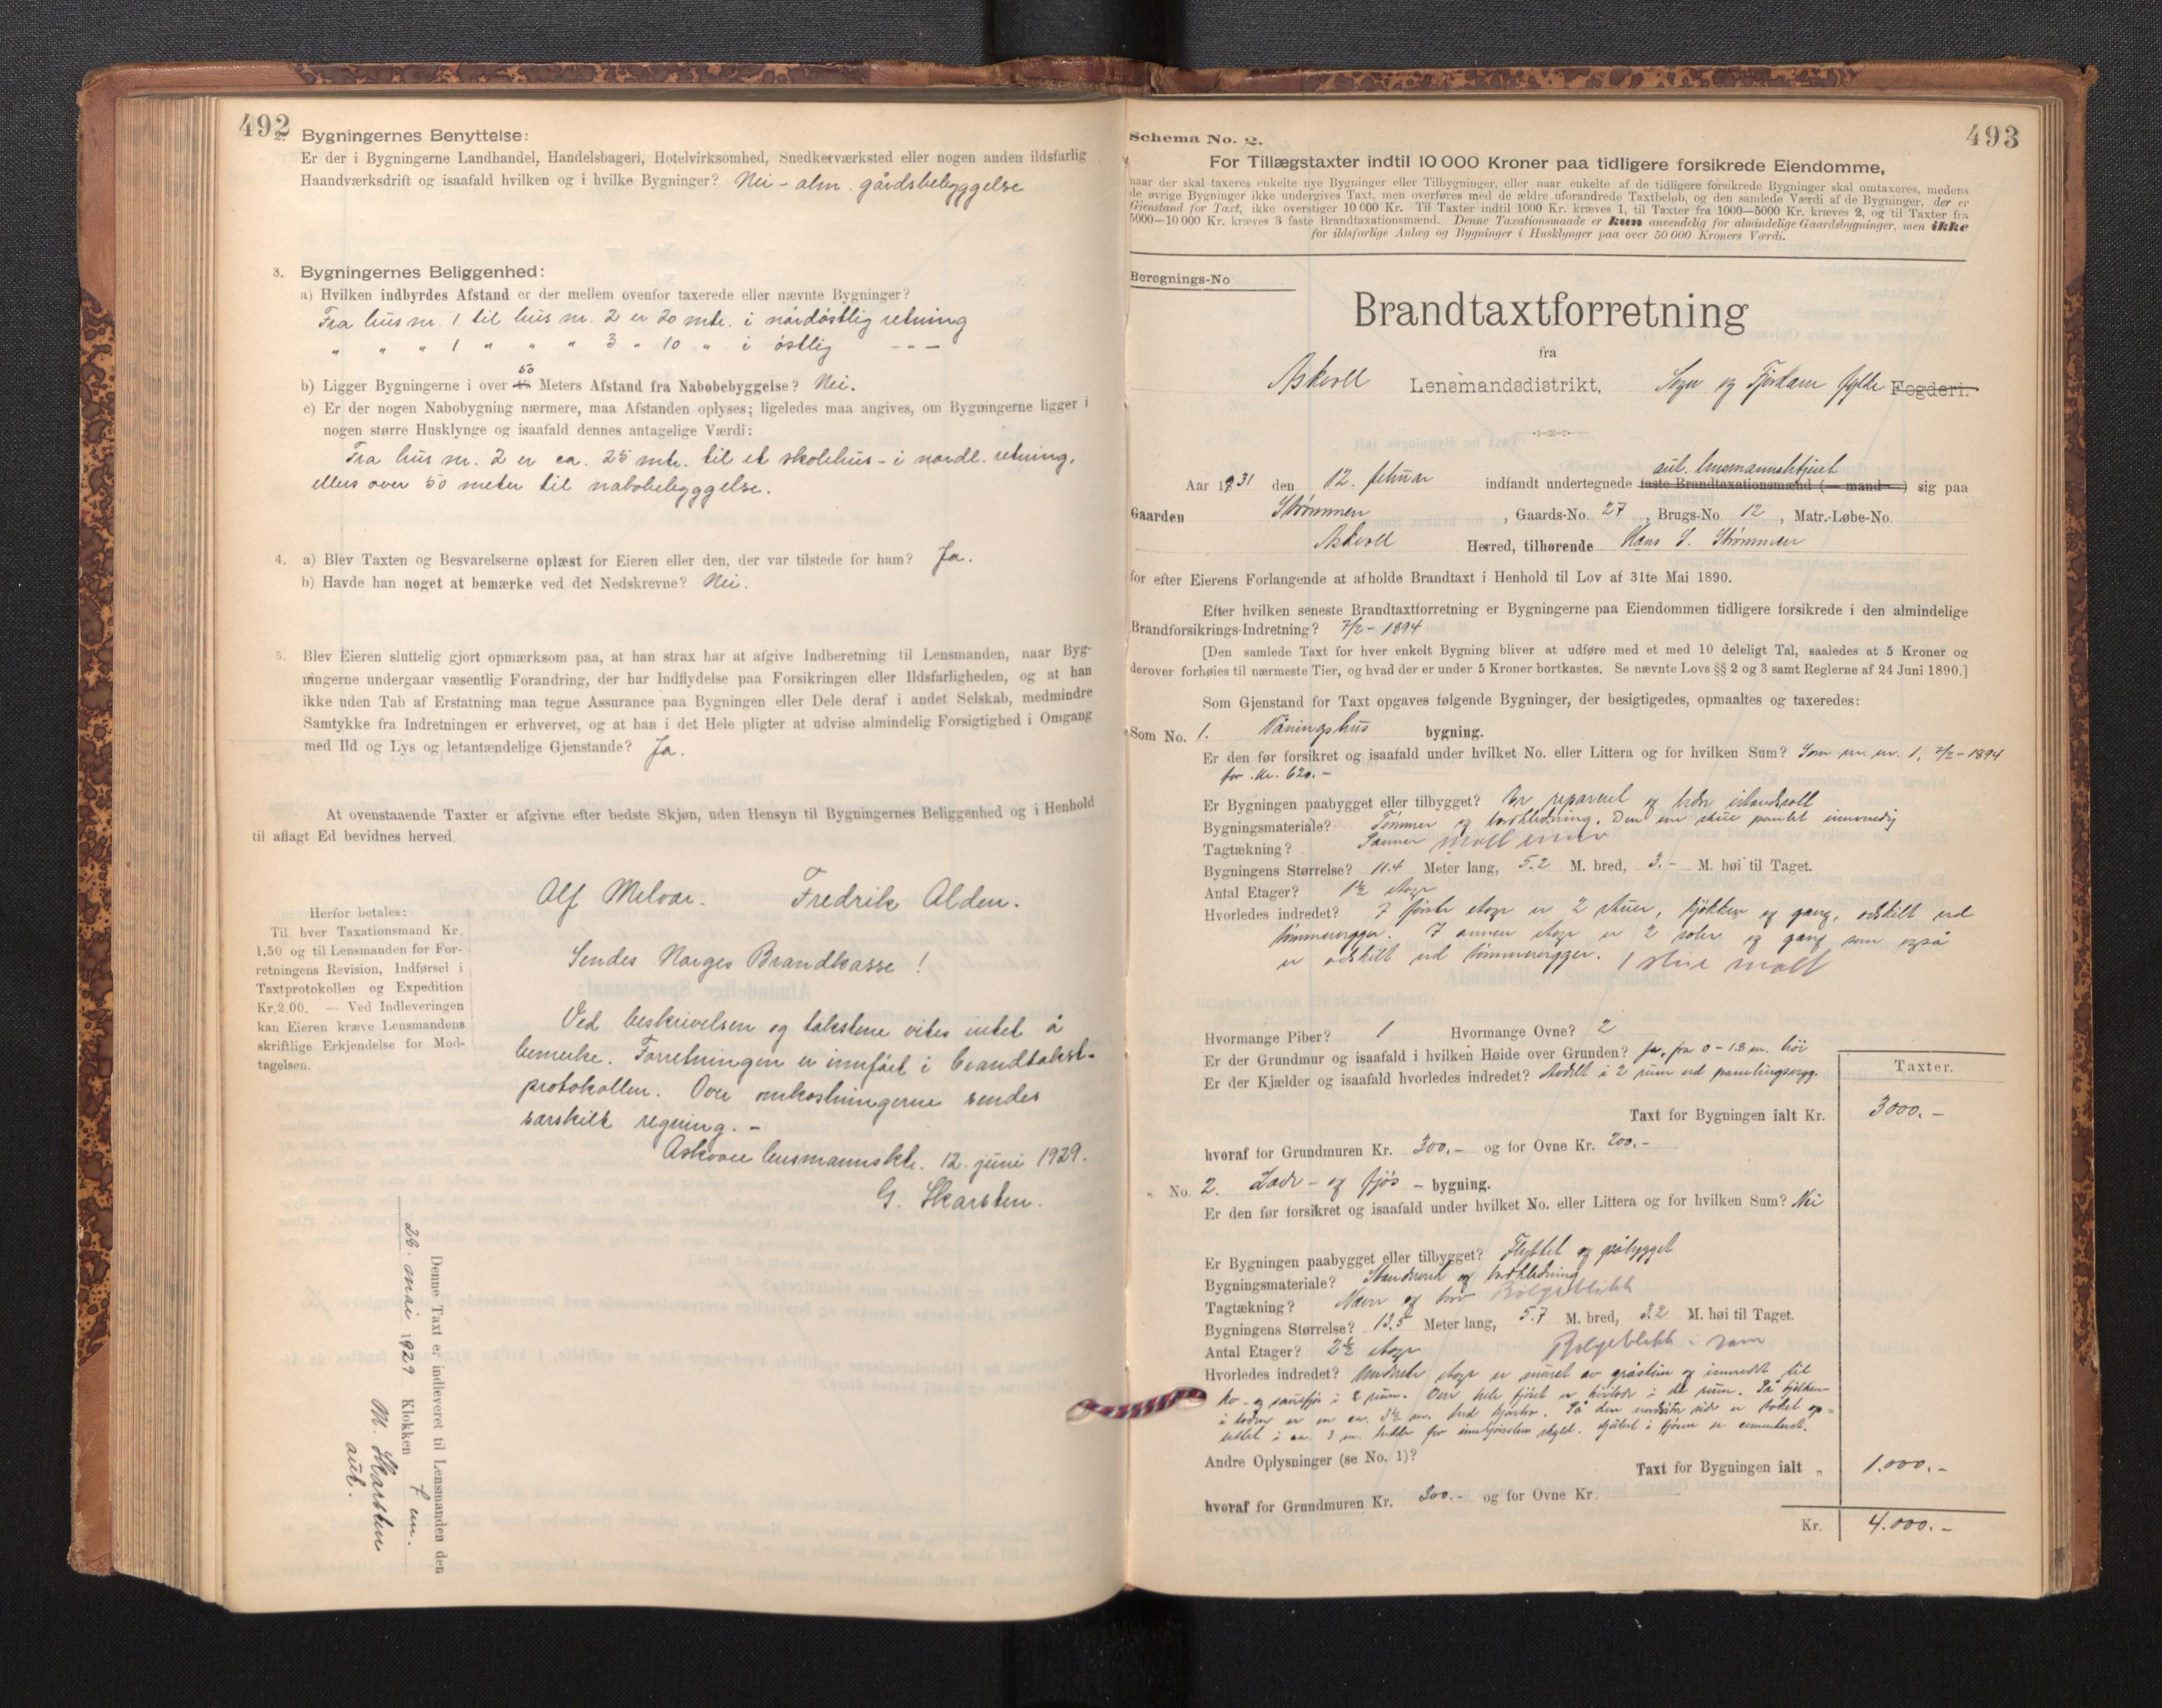 492
2. Bygningernes Benyttelse:
Er der i Bygningerne Landhandel, Handelsbageri, Hotelvirksomhed, Snedkerværksted eller nogen anden ildsfarlig
Haandværksdrift og isaafald hvilken og i hvilke Bygninger? Nei - alm. gårdsbebyggelse
3. Bygningernes Beliggenhed:
a) Hvilken indbyrdes Afstand er der mellem ovenfor taxerede eller nævnte Bygninger?
Fra hus nr. 1 til hus nr. 2 er 20 mtr. i nordöstlig retning
" " " 1 " " " 3 " 10 " i östlig - " -
b) Ligger Bygningerne i over 50 Meters Afstand fra Nabobebyggelse? Nei.
c) Er der nogen Nabobygning nærmere, maa Afstanden oplyses; ligeledes maa angives, om Bygningerne ligger i
nogen større Husklynge og isaafald dennes antagelige Værdi:
Fra hus nr. 2 er ca. 25 mtr. til et skolehus - i nordl. retning,
ellers over 50 meter til nabobebyggelse.
4. a) Blev Taxten og Besvarelserne oplæst for Eieren eller den, der var tilstede for ham? Ja.
b) Havde han noget at bemærke ved det Nedskrevne? Nei.
5. Blev Eieren sluttelig gjort opmærksom paa, at han strax har at afgive Indberetning til Lensmanden, naar Byg-
ningerne undergaar væsentlig Forandring, der har Indflydelse paa Forsikringen eller Ildsfarligheden, og at han
ikke uden Tab af Erstatning maa tegne Assurance paa Bygningen eller Dele deraf i andet Selskab, medmindre
Samtykke fra Indretningen er erhvervet, og at han i det Hele pligter at udvise almindelig Forsigtighed i Omgang
med Ild og Lys og letantændelige Gjenstande? Ja.
At ovenstaaende Taxter er afgivne efter bedste Skjøn, uden Hensyn til Bygningernes Beliggenhed og i Henhold
til aflagt Ed bevidnes herved.
Alf Melvær. Fredrik Alden.
Herfor betales:
Til hver Taxationsmand Kr.
1.50 og til Lensmanden for For-
retningens Revision, Indførsel i
Taxtprotokollen og Expedition
Kr. 2.00. — Ved Indleveringen
kan Eieren kræve Lensmandens
skriftlige Erkjendelse for Mod-
tagelsen.
Sendes Norges Brandkasse!
Ved beskrivelsen og takstene vites intet å
bemerke. Forretningen er innfört i brandtakst-
protokollen. Over omkostningerne sendes
særskilt regning. -
Askvoll lensmannsktr. 12. juni 1929.
G. Skarsten.
Denne Taxt er indleveret til Lensmanden den
26. mai 1929 Klokken 7 em.
M. Skarsten
aut.
493
Schema No. 2.
For Tillægstaxter indtil 10 000 Kroner paa tidligere forsikrede Eiendomme,
naar der skal taxeres enkelte nye Bygninger eller Tilbygninger, eller naar enkelte af de tidligere forsikrede Bygninger skal omtaxeres, medens
de øvrige Bygninger ikke undergives Taxt, men overføres med de ældre uforandrede Taxtbeløb, og den samlede Værdi af de Bygninger, der er
Gjenstand for Taxt, ikke overstiger 10 000 Kr. Til Taxter indtil 1000 Kr. kræves 1, til Taxter fra 1000—5000 Kr. kræves 2, og til Taxter fra
5000—10 000 Kr. kræves 3 faste Brandtaxationsmænd. Denne Taxationsmaade er kun anvendelig for almindelige Gaardsbygninger, men ikke
for ildsfarlige Anlæg og Bygninger i Husklynger paa over 50 000 Kroners Værdi.
Beregnings-No
Brandtaxtforretning
fra
Askvoll Lensmandsdistrikt, Sogn og Fjordane fylke Fogderi.
aut. lensmannsbetjent
Aar 1931 den 12. februar indfandt undertegnede faste Brandtaxationsmænd (— mand —) sig paa
Gaarden Strømmen, Gaards-No. 27, Brugs-No. 12, Matr.-Løbe-No.
Askvoll Herred, tilhørende Hans S. Strømmen
for efter Eierens Forlangende at afholde Brandtaxt i Henhold til Lov af 31te Mai 1890.
Efter hvilken seneste Brandtaxtforretning er Bygningerne paa Eiendommen tidligere forsikrede i den almindelige
Brandforsikrings-Indretning? 7/2 - 1894
[Den samlede Taxt for hver enkelt Bygning bliver at udføre med et med 10 deleligt Tal, saaledes at 5 Kroner og
derover forhøies til nærmeste Tier, og hvad der er under 5 Kroner bortkastes. Se nævnte Lovs §§ 2 og 3 samt Reglerne af 24 Juni 1890.]
Som Gjenstand for Taxt opgaves følgende Bygninger, der besigtigedes, opmaaltes og taxeredes:
Som No. 1. Våningshus bygning.
Er den før forsikret og isaafald under hvilket No. eller Littera og for hvilken Sum? Som nr. 1, 7/2 - 1894
for kr. 620.-
Er Bygningen paabygget eller tilbygget? Er reparert og
Bygningsmateriale? Tømmer og bordkledning. Den ene stue panelt innvendig
Tagtækning? Panner
Bygningens Størrelse? 11.4 Meter lang, 5.2 M. bred, 3.- M. høi til Taget.
Antal Etager? 1½ etage
Hvorledes indredet? I første etage er 2 stuer, kjøkken og gang, adskilt ved
tømmervegger. I annen etage er 2 soler og gang som også
er adskilt ved tømmervegger. 1 stue malt
Hvormange Piber? 1 Hvormange Ovne? 2
Er der Grundmur og isaafald i hvilken Høide over Grunden? Ja, fra 0 - 1.8 m. høi
Er der Kjælder og isaafald hvorledes indredet? Avdelt i 2 rum ved panelingsvegg.
Taxter.
Taxt for Bygningen ialt Kr. 3000.-
hvoraf for Grundmuren Kr. 300.- og for Ovne Kr. 200.-
" No. 2. Lade - og fjøs - bygning.
Er den før forsikret og isaafald under hvilket No. eller Littera og for hvilken Sum? Nei
Er Bygningen paabygget eller tilbygget? Flyttet og påbygget
Bygningsmateriale? Standverk og bordkledning
Tagtækning? Næver og torv Bølgeblikk
Bygningens Størrelse? 13.5 Meter lang, 5.7 M. bred, 3.2 M. høi til Taget.
Antal Etager? 2½ etage Bølgeblikk
Hvorledes indredet? Underste etage er muret av gråstein og innredet til
ko - og sauefjøs i 2 rum. Over hele fjøset er
i laden er en ca. 3½ m. bred På den side er taket op-
satt i ca. 3 m. bredde for i fjøsen er cementert.
Andre Oplysninger (se No. 1)?
Taxt for Bygningen ialt „ 1.000.-
hvoraf for Grundmuren Kr. 300.- og for Ovne Kr.
Kr. 4.000.-